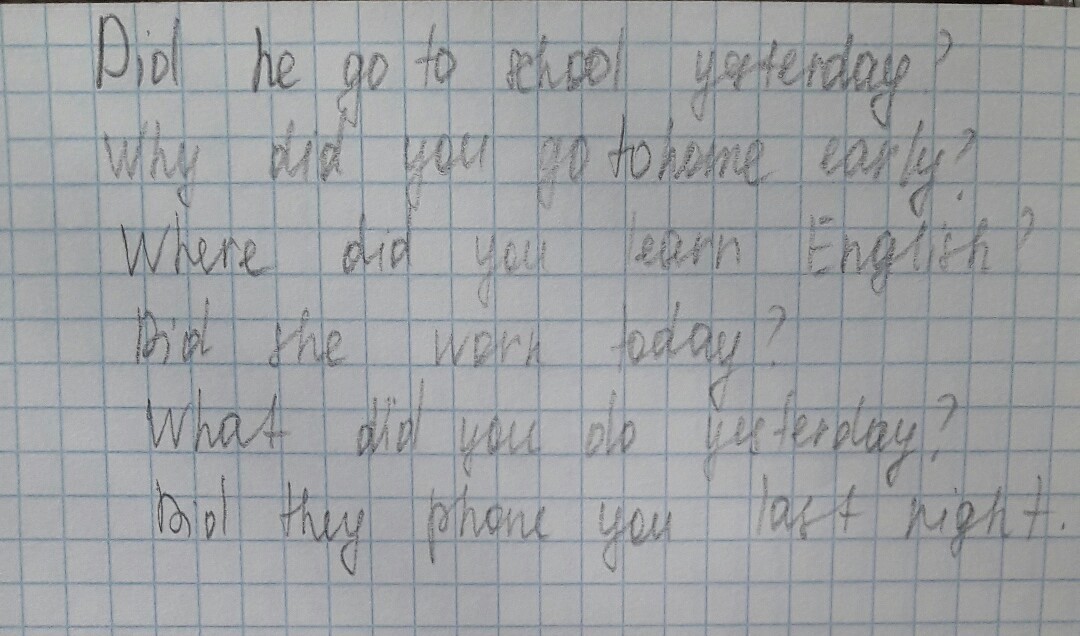 Did he go to school yesterday?
Why did you go to home early?
Where did you learn English?
Did she work today?
What did you do yesterday?
Did they phone you last night.